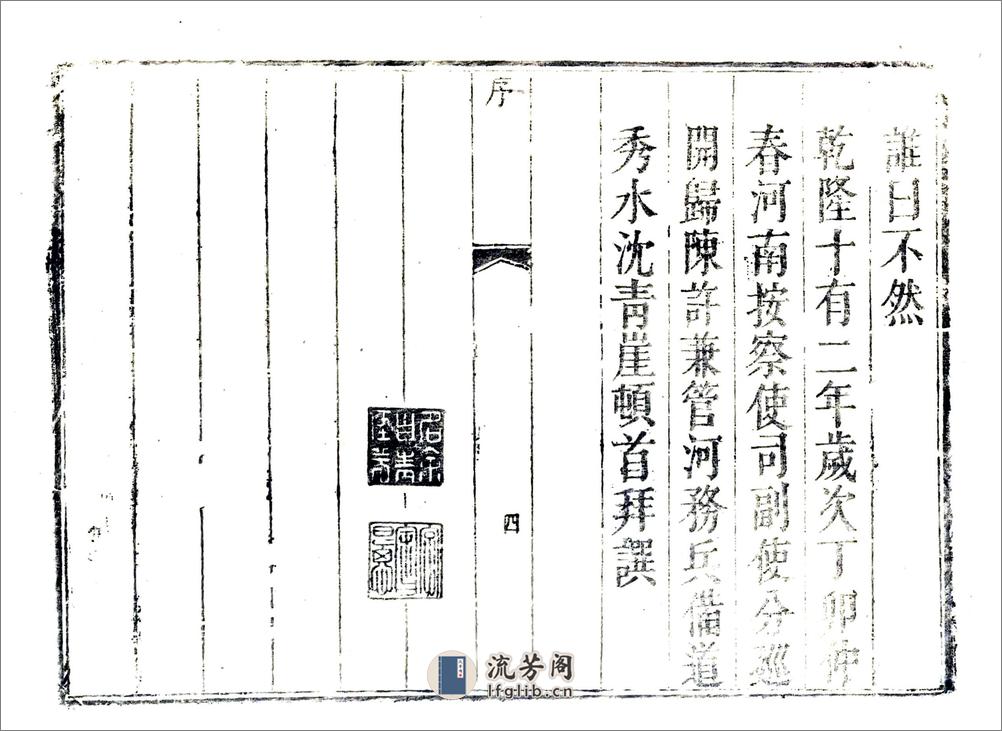 誰曰不然
乾隆十有二年歲次丁卯仲
春河南按察使司副使分巡
開歸陳許兼管河務兵備道
秀水沈青崖頓首拜譔
序
四
流芳阁
lfglib.cn